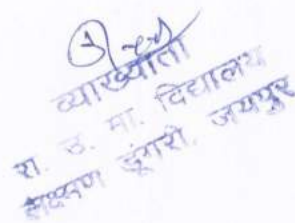 व्याख्याता
रा. उ. मा. विद्यालय
लक्ष्मण डूंगरी, जयपुर